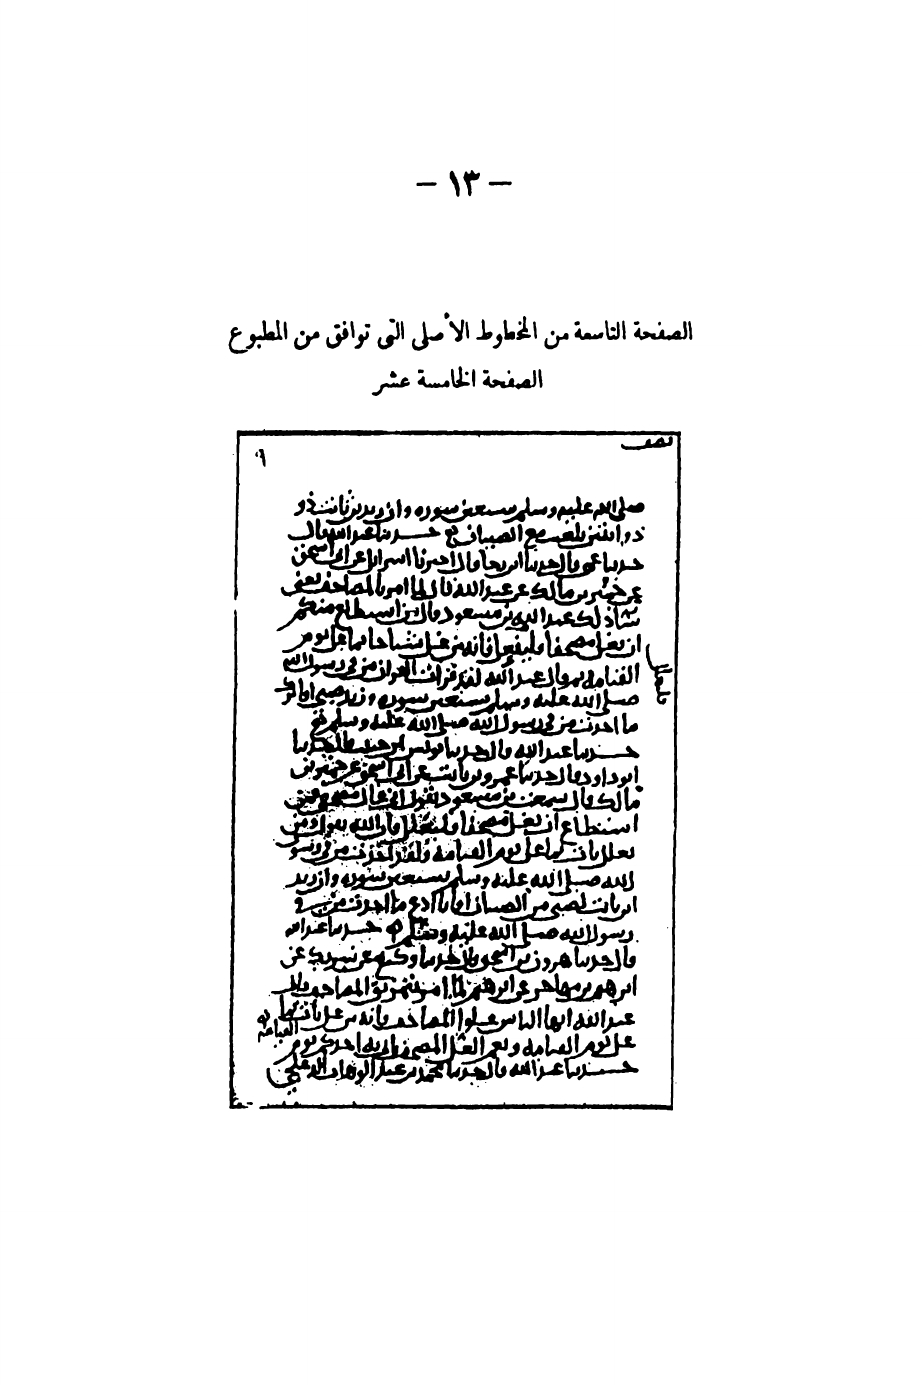 – ١٣ –
الصفحة التاسعة من المخطوط الأصلى التى توافق من المطبوع
الصفحة الخامسة عشر
نصف
٩
صلى الله عليه وسلم سبعين سوره وان زيد بن ثابت ذو
ذوابتين يلعب مع الصبيان حدثنا عبد الله قال
حدثنا عمي قال حدثنا ابن رجا قال اخبرنا اسرايل عن ابي اسحق
عن خمير بن مالك عن عبد الله قال لما امر بالمصاحف
ذلك عبد الله بن مسعود قال من استطاع منكم
ان يغل مصحفا فليفعل فانه من غل شيا جا بما غل يوم
القيامه ثم قال عبد الله لقد قرات القران من في رسول الله
صلى الله عليه وسلم سبعين سوره وزيد صبي افاترك
ما اخذت من في رسول الله صلى الله عليه وسلم
حدثنا عبد الله قال حدثنا يونس بن حبيب قال حدثنا
ابو داود قال حدثنا عمرو بن ثابت عن ابي اسحق عن خمير بن
مالك قال سمعت بن مسعود يقول اني غال مصحفي فمن
استطاع ان يغل مصحفا فليغلل فان الله يقول ومن
يغلل يات بما غل يوم القيامه ولقد اخذت من في رسول
الله صلى الله عليه وسلم سبعين سوره وان زيد
ابن ثابت لصبي من الصبيان افانا ادع ما اخذت من في
رسول الله صلى الله عليه وسلم حدثنا عبد الله
قال حدثنا هرون بن اسحق قال حدثنا وكيع عن شريك عن
ابرهيم بن مهاجر عن ابرهيم لما امر بتمزيق المصاحف قال
عبد الله ايها الناس غلوا المصاحف فانه من غل يات بما
غل يوم القيامه ونعم الغل المصحف ياتي به احدكم يوم
القيامه
حدثنا عبد الله قال حدثنا محمد بن عبد الوهاب الدعلجي